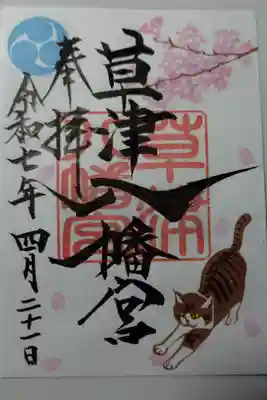 草津八幡宮
奉拝
令和七年 四月 二十一日
草津八幡宮